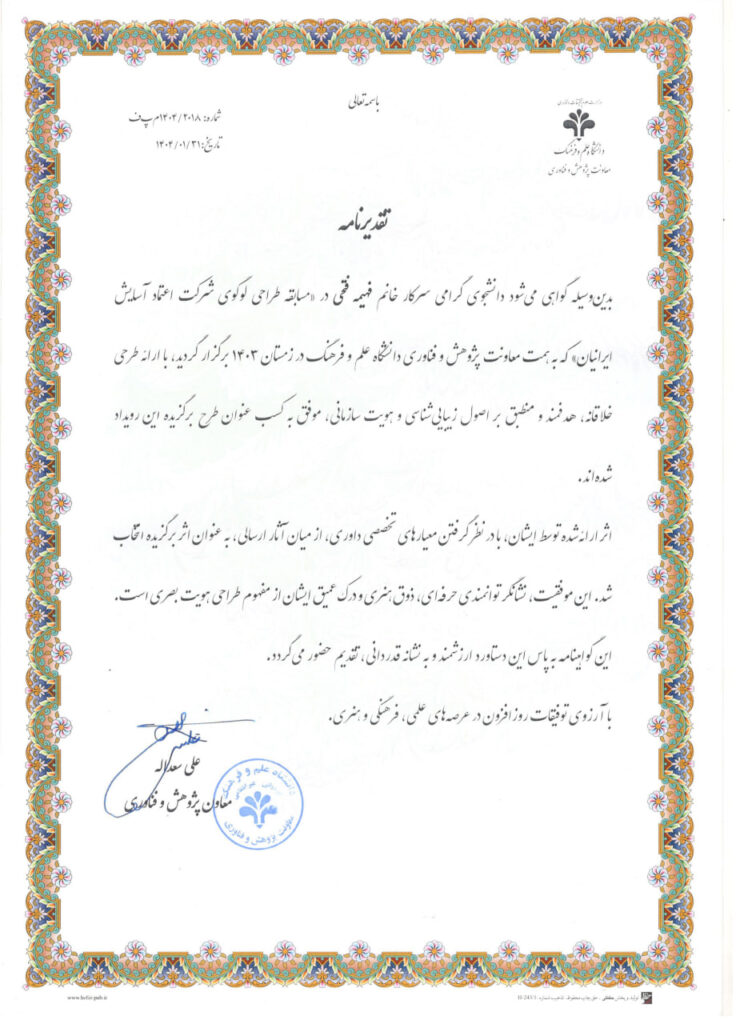 باسمه تعالی
وزارت علوم، تحقیقات و فناوری
دانشگاه علم و فرهنگ
معاونت پژوهش و فناوری
شماره: ۱۴۰۴/۲۰۱۸م پ ف
تاریخ: ۱۴۰۴/۰۱/۳۱
تقدیرنامه
بدین‌وسیله گواهی می‌شود دانشجوی گرامی سرکار خانم فهیمه فتحی در «مسابقه طراحی لوگوی شرکت اعتماد آسایش
ایرانیان» که به همت معاونت پژوهش و فناوری دانشگاه علم و فرهنگ در زمستان ۱۴۰۳ برگزار گردید، با ارائه طرحی
خلاقانه، هدفمند و منطبق بر اصول زیبایی‌شناسی و هویت سازمانی، موفق به کسب عنوان طرح برگزیده این رویداد
شده‌اند.
اثر ارائه‌شده توسط ایشان، با در نظر گرفتن معیارهای تخصصی داوری، از میان آثار ارسالی، به عنوان اثر برگزیده انتخاب
شد. این موفقیت، نشانگر توانمندی حرفه‌ای، ذوق هنری و درک عمیق ایشان از مفهوم طراحی هویت بصری است.
این گواهینامه به پاس این دستاورد ارزشمند و به نشانه قدردانی، تقدیم حضور می‌گردد.
با آرزوی توفیقات روزافزون در عرصه‌های علمی، فرهنگی و هنری.
علی سعداله
معاون پژوهش و فناوری
دانشگاه علم و فرهنگ
معاونت پژوهش و فناوری
www.hefzi-pub.ir
تولید و پخش حفظی . حق چاپ محفوظ. تذهیب شماره: H-243/5